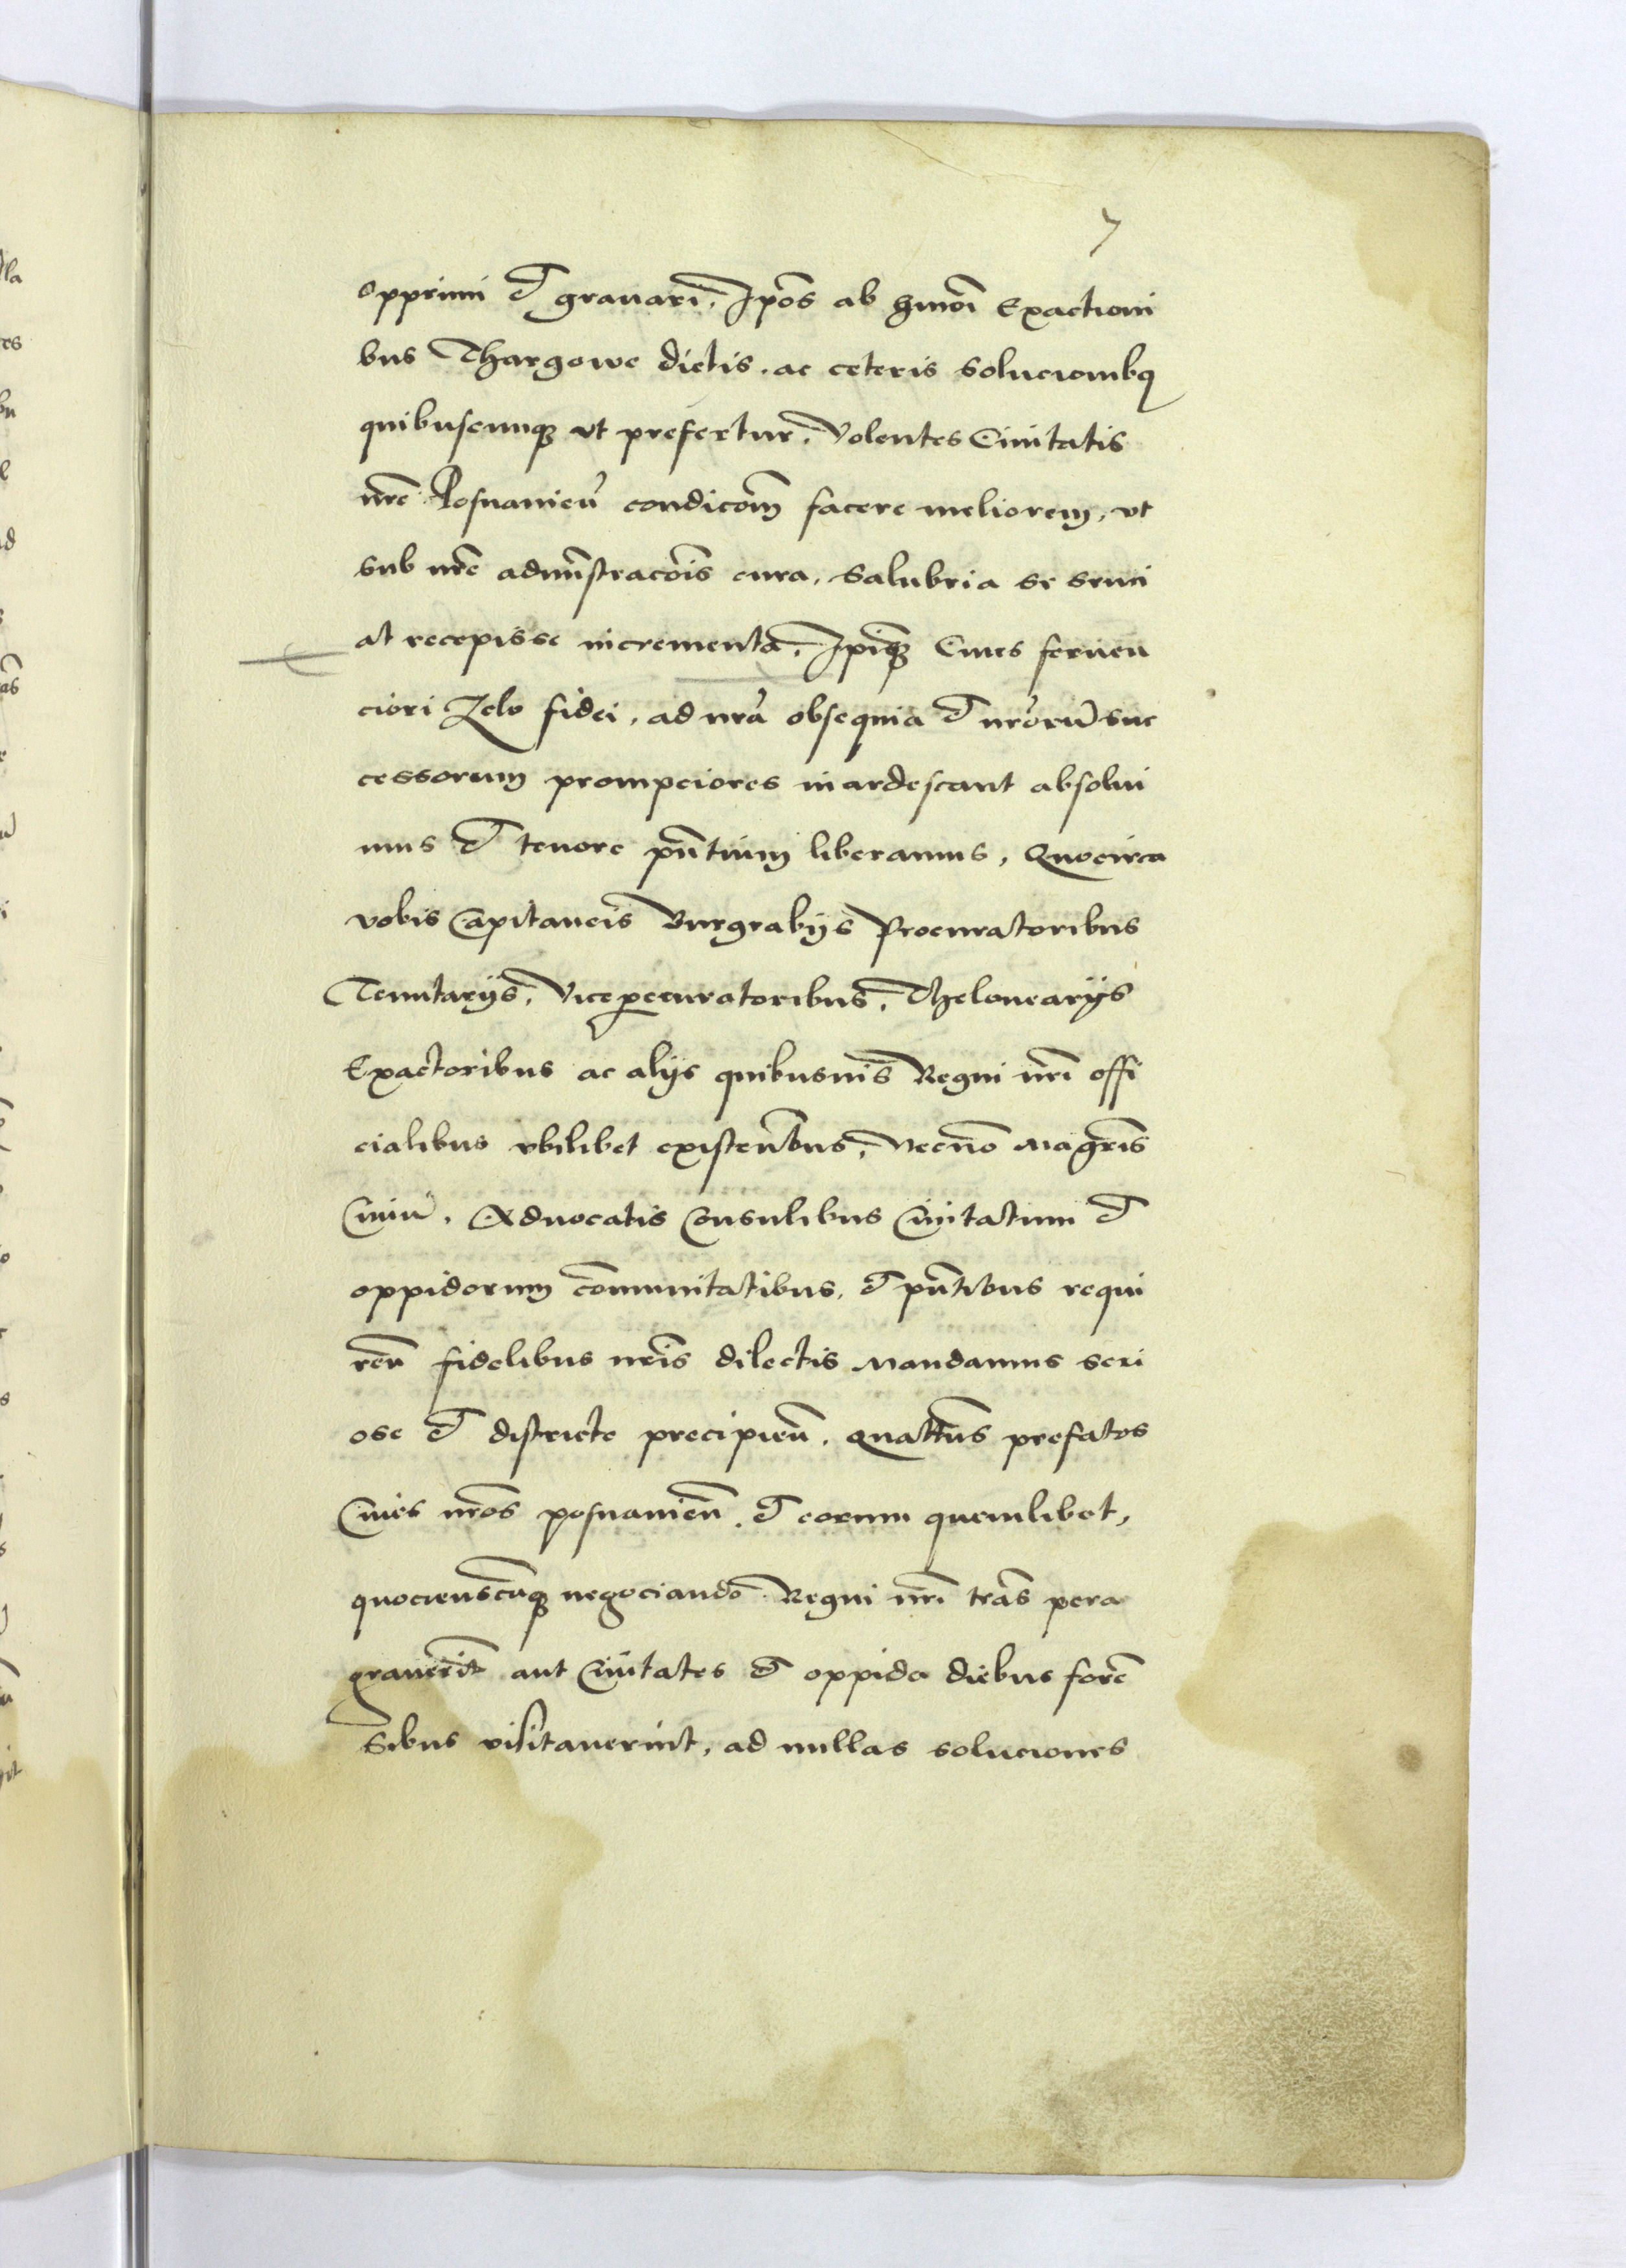 7
opprimi et grauari, Ip̄os ab hm̄oi Exactioni
bus Thargowe dictis, ac ceteris Solucionibq
quibuscunq̄ vt prefertur, Volentes Ciuitatis
nr̄e Posnanien̄ condicōm facere meliorem, vt
sub nr̄e adm̄nstracōis cura, Salubria se senci
at recepisse incrementa, Ip̄iq̄ Ciues feruen
ciori Zelo fidei, ad nr̄a obsequia et nr̄orū suc
cessorum prompciores inardescant absolui
mus et tenore pn̄tium liberamus, Quocirca
vobis Capitaneis Burgrabijs Procuratoribus
Tenutarijs, Viceprocuratoribus, Thelonearijs
Exactoribus ac alijs quibusuis Regni nr̄i offi
cialibus vbilibet existen̄tbus, Necnō Magr̄is
Ciuiū, Aduocatis Consulibus Ciuitatum et
oppidorum cōmunitatibus, et pn̄tibus requi
ren̄ fidelibus nr̄is dilectis Mandamus seri
ose et districte precipien̄, Quatt̄us prefatos
Ciues nr̄os posnanien̄ et eorum quemlibet,
quocienscūq̄ negociando Regni nr̄i tr̄as pera
grauerīt aut Ciuitates et oppida diebus forē
sibus visitauerint, ad nullas soluciones